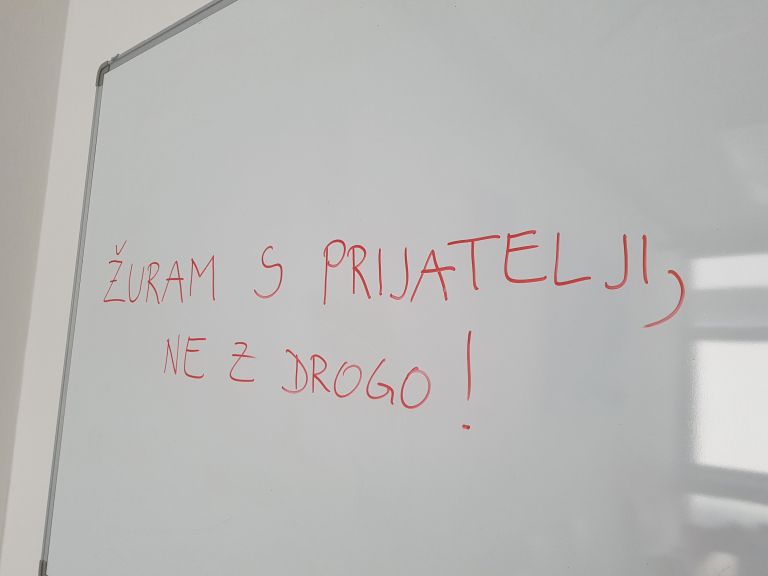 ŽURAM S PRIJATELJI,
NE Z DROGO!